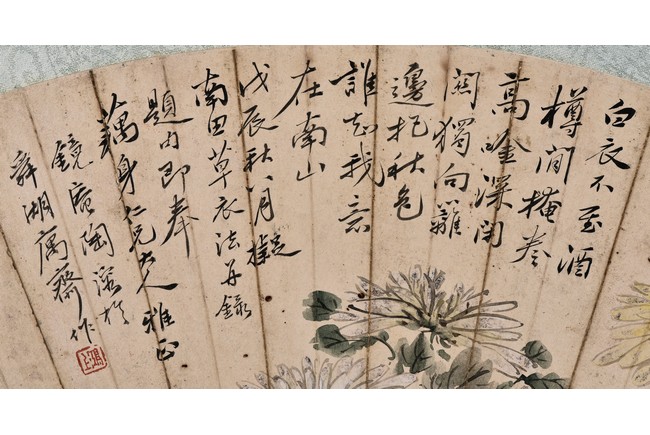 白衣不至酒
樽閒掩卷
高吟深閉
關獨向籬
邊把秋色
誰知我意
在南山
戊辰秋八月擬
南田草衣法并錄
題句即奉
藕身仁兄大人雅正
鏡庵陶
湖寓齋作